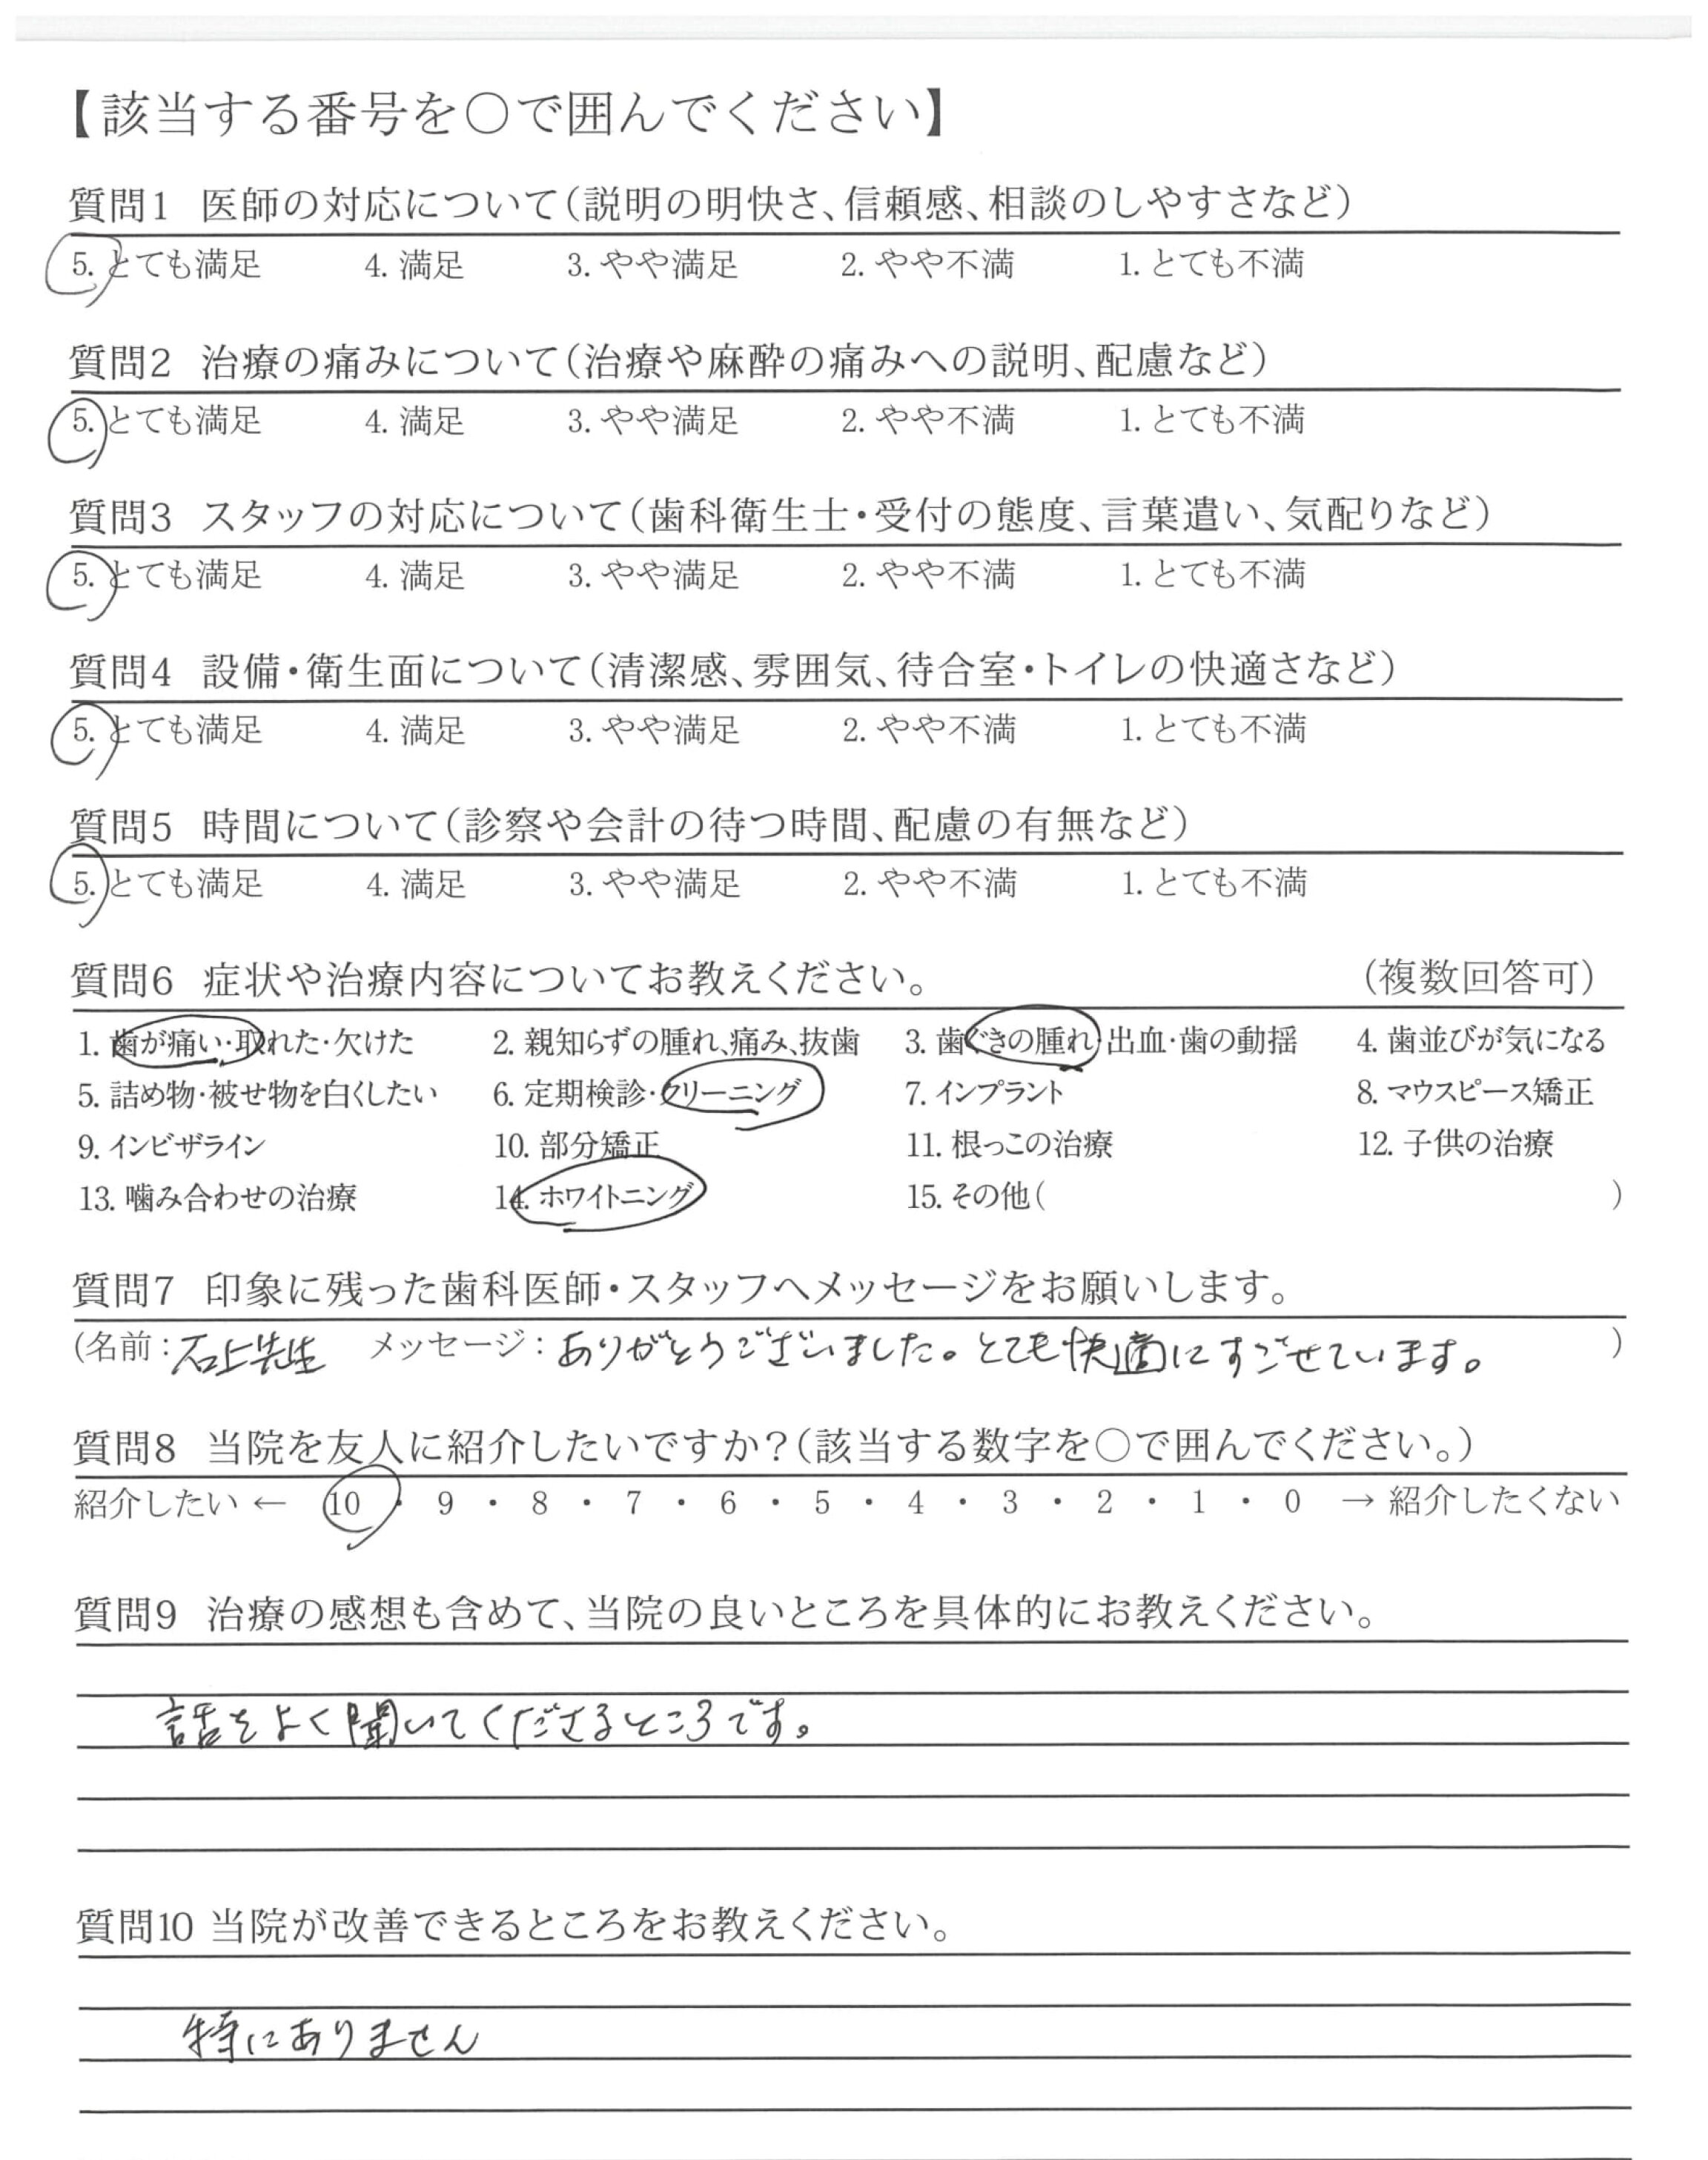 【該当する番号を○で囲んでください】
質問1 医師の対応について（説明の明快さ、信頼感、相談のしやすさなど）
5. とても満足 4. 満足 3. やや満足 2. やや不満 1. とても不満
質問2 治療の痛みについて（治療や麻酔の痛みへの説明、配慮など）
5. とても満足 4. 満足 3. やや満足 2. やや不満 1. とても不満
質問3 スタッフの対応について（歯科衛生士・受付の態度、言葉遣い、気配りなど）
5. とても満足 4. 満足 3. やや満足 2. やや不満 1. とても不満
質問4 設備・衛生面について（清潔感、雰囲気、待合室・トイレの快適さなど）
5. とても満足 4. 満足 3. やや満足 2. やや不満 1. とても不満
質問5 時間について（診察や会計の待つ時間、配慮の有無など）
5. とても満足 4. 満足 3. やや満足 2. やや不満 1. とても不満
質問6 症状や治療内容についてお教えください。 （複数回答可）
1. 歯が痛い・取れた・欠けた 2. 親知らずの腫れ、痛み、抜歯 3. 歯ぐきの腫れ・出血・歯の動揺 4. 歯並びが気になる
5. 詰め物・被せ物を白くしたい 6. 定期検診・クリーニング 7. インプラント 8. マウスピース矯正
9. インビザライン 10. 部分矯正 11. 根っこの治療 12. 子供の治療
13. 噛み合わせの治療 14. ホワイトニング 15. その他（ ）
質問7 印象に残った歯科医師・スタッフへメッセージをお願いします。
（名前：石上先生 メッセージ：ありがとうございました。とても快適にすごせています。 ）
質問8 当院を友人に紹介したいですか？（該当する数字を○で囲んでください。）
紹介したい ← 10 ・ 9 ・ 8 ・ 7 ・ 6 ・ 5 ・ 4 ・ 3 ・ 2 ・ 1 ・ 0 → 紹介したくない
質問9 治療の感想も含めて、当院の良いところを具体的にお教えください。
話をよく聞いてくださるところです。
質問10 当院が改善できるところをお教えください。
特にありません